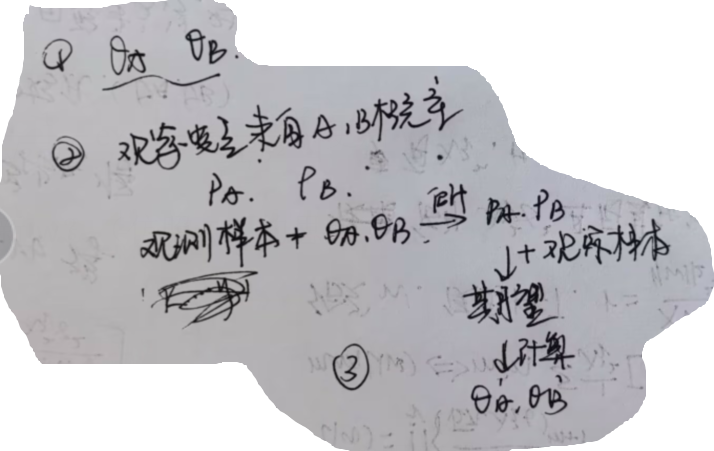 ① θA θB.
② 观察变量来自A,B概率
PA. PB.
观测样本 + θA.θB. 估计→ PA.PB
↓+观察样本
期望
↓计算
③
θA.θB